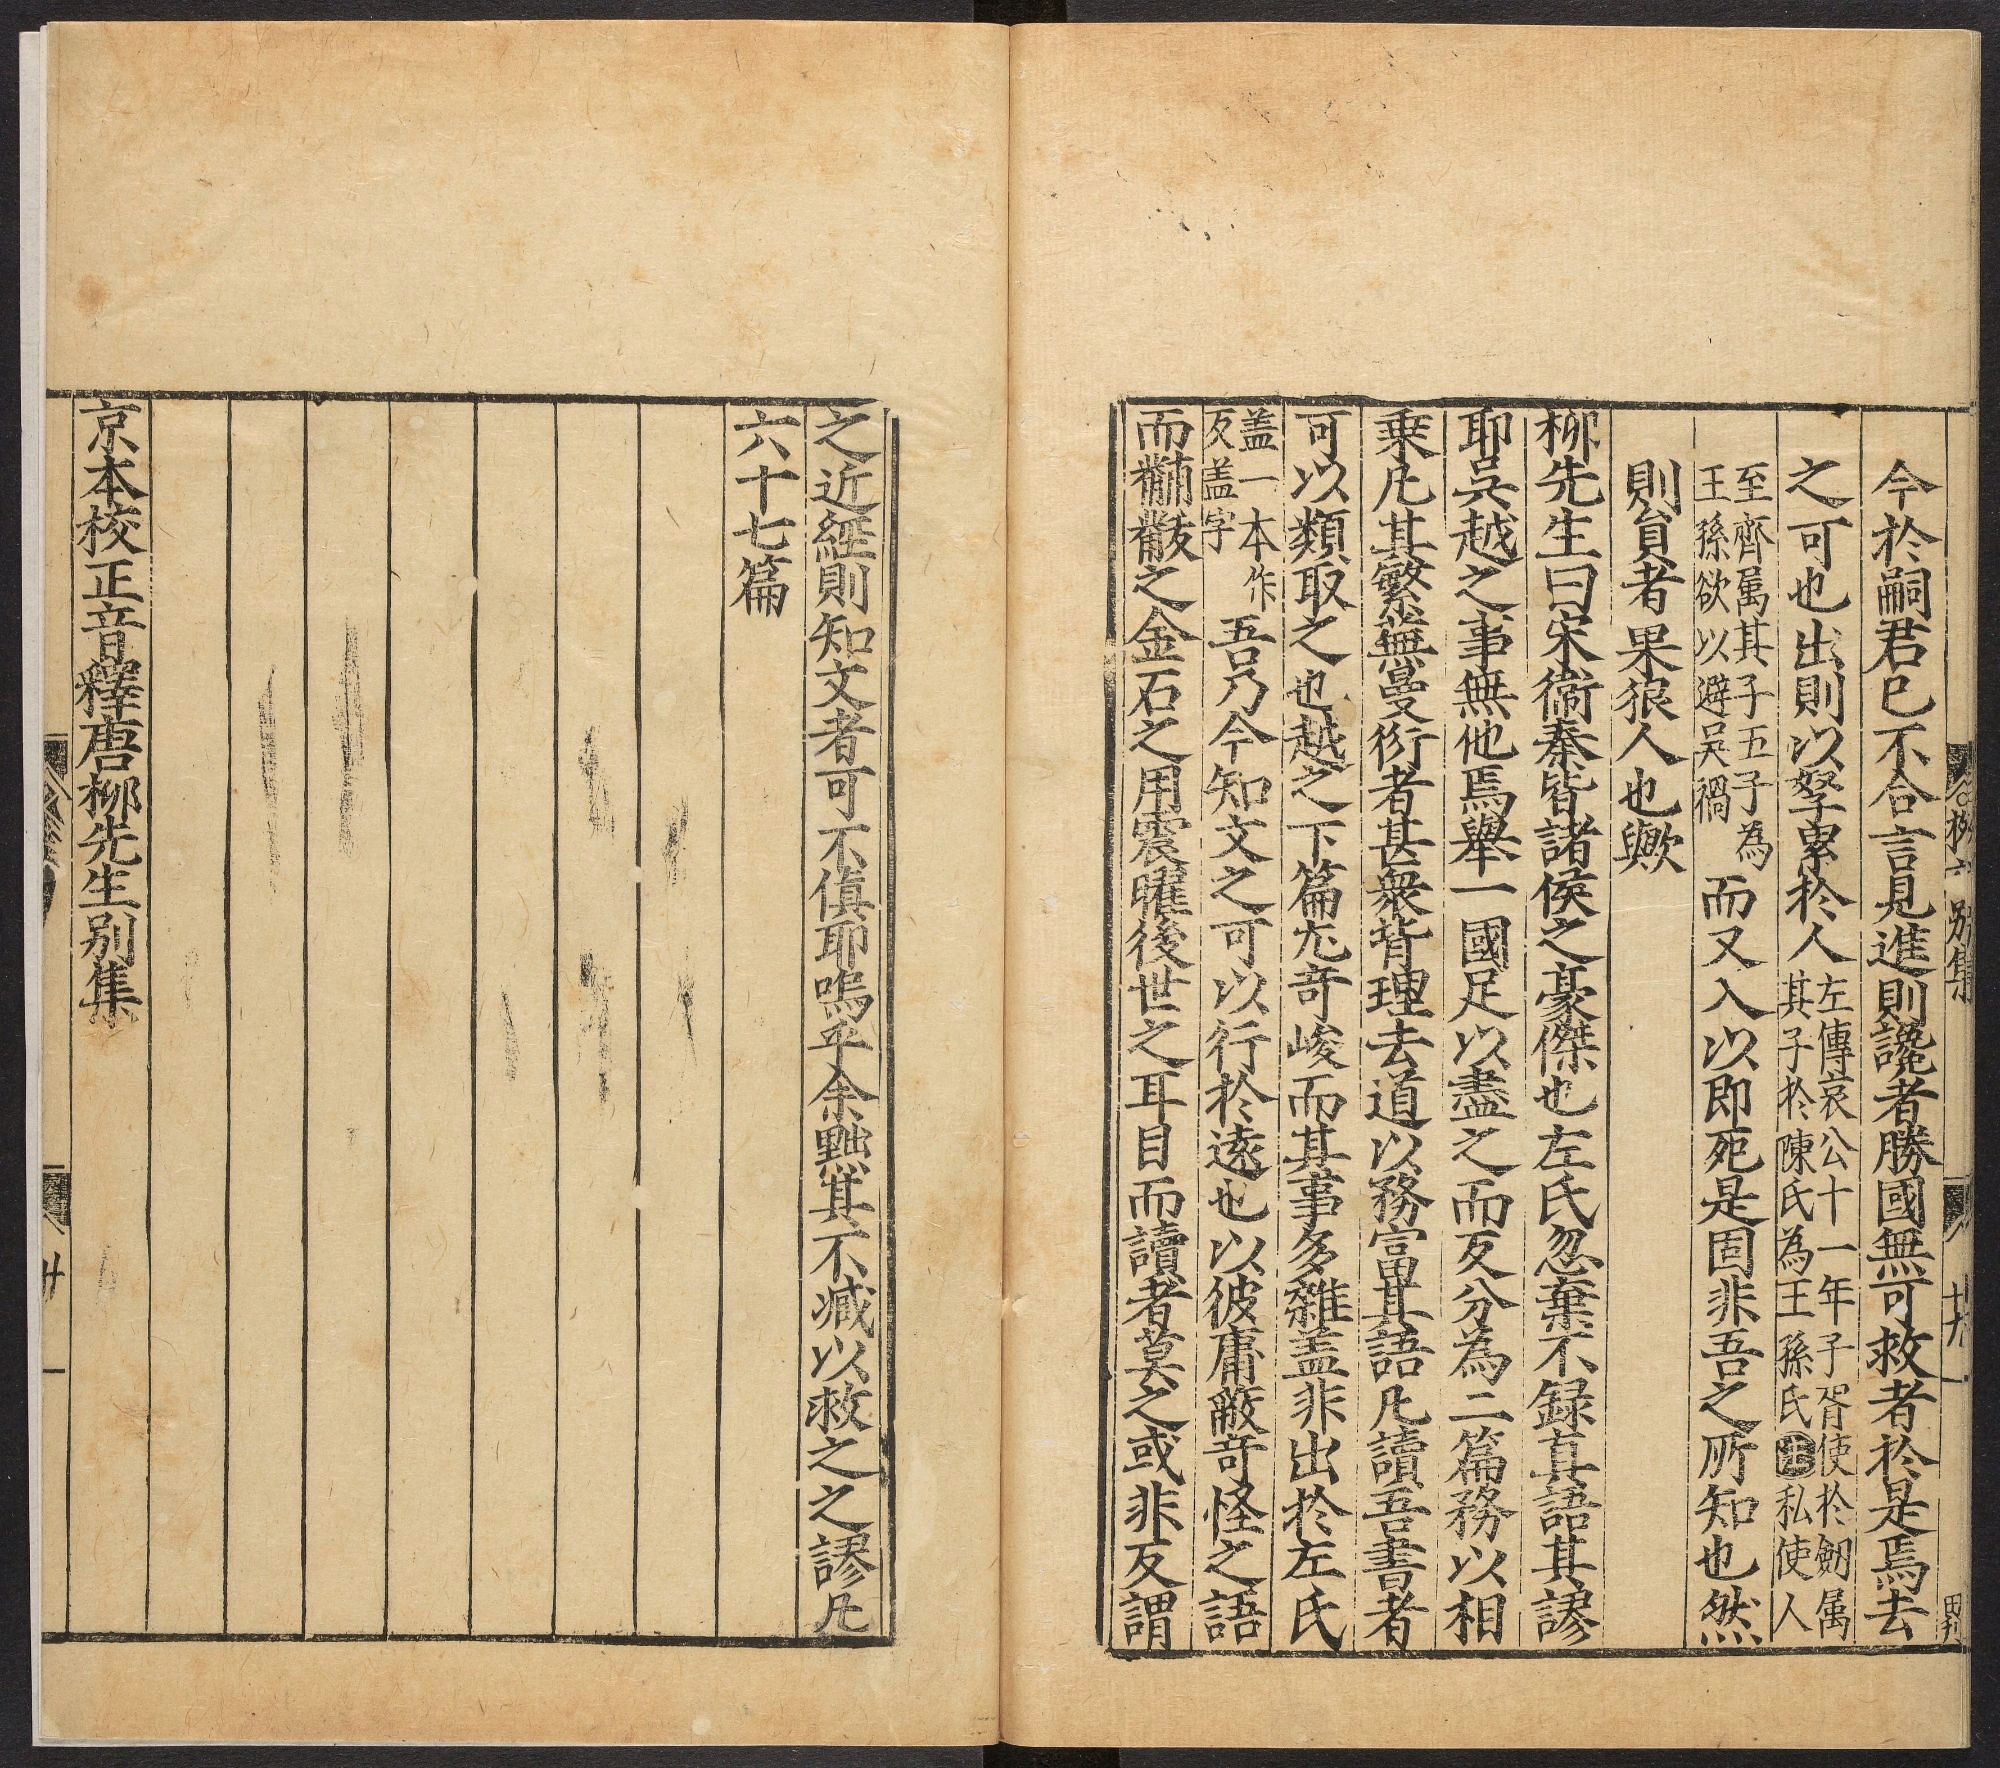 今於嗣君已不合言見進則讒者勝國無可救者於是焉去
之可也出則以孥累於人左傳哀公十一年子胥使於齊属其子於陳氏為王孫氏 私使人
至齊属其子五子為王孫欲以避吳禍而又入以即死是固非吾之所知也然
則貟者果狼人也歟
柳先生曰宋衞秦皆諸侯之豪傑也左氏忽棄不録其語其謬
耶吳越之事無他焉舉一國足以盡之而反分為二篇務以相
乗凡其繁蕪曼衍者甚衆背理去道以務富其語凡讀吾書者
可以類取之也越之下篇尤奇峻而其事多雜盖非出於左氏
盖一本作反盖字吾乃今知文之可以行於遠也以彼庸蔽奇怪之語
而黼黻之金石之用震曜後世之耳目而讀者莫之或非反謂
之近經則知文者可不慎耶嗚乎余黜其不臧以救之之謬凡
六十七篇
京本校正音釋唐柳先生别集